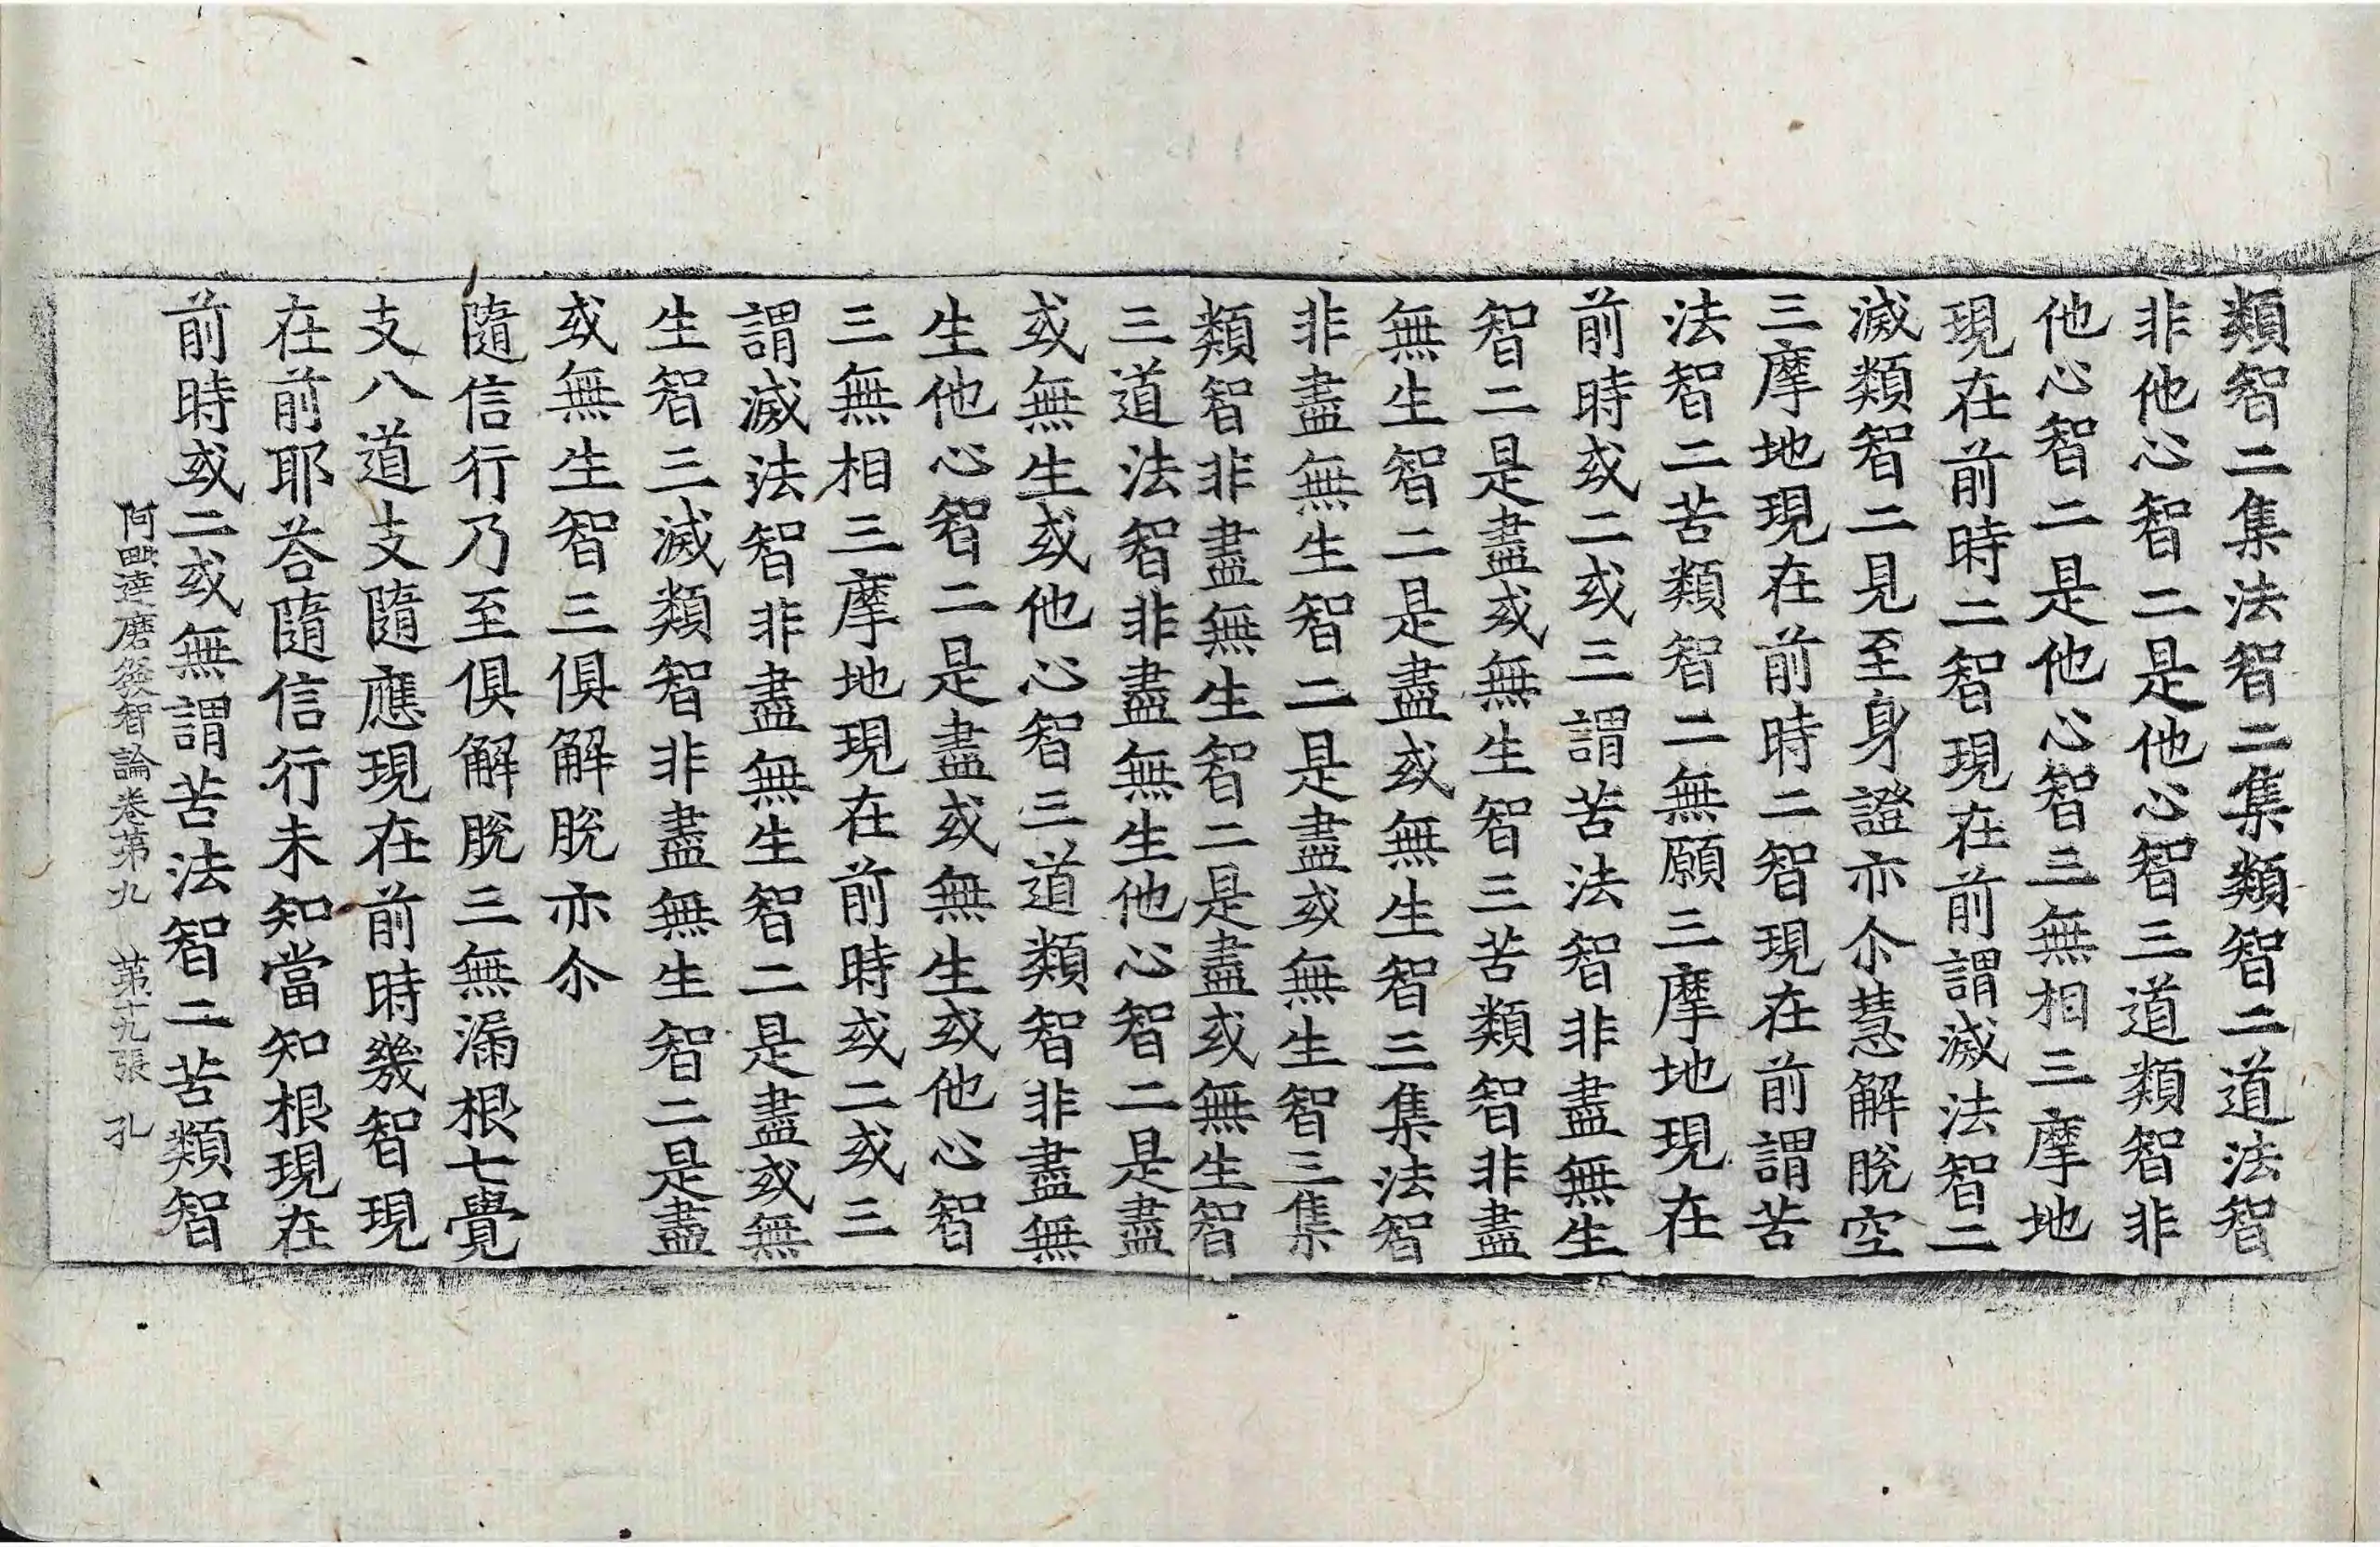 類智二集法智二集類智二道法智
非他心智二是他心智三道類智非
他心智二是他心智三無相三摩地
現在前時二智現在前謂滅法智二
滅類智二見至身證亦尒慧解脫空
三摩地現在前時二智現在前謂苦
法智二苦類智二無願三摩地現在
前時或二或三謂苦法智非盡無生
智二是盡或無生智三苦類智非盡
無生智二是盡或無生智三集法智
非盡無生智二是盡或無生智三集
類智非盡無生智二是盡或無生智
三道法智非盡無生他心智二是盡
或無生或他心智三道類智非盡無
生他心智二是盡或無生或他心智
三無相三摩地現在前時或二或三
謂滅法智非盡無生智二是盡或無
生智三滅類智非盡無生智二是盡
或無生智三俱解脫亦尒
隨信行乃至俱解脫三無漏根七覺
支八道支隨應現在前時幾智現
在前耶荅隨信行未知當知根現在
前時或二或無謂苦法智二苦類智
阿毗達磨發智論卷第九　第十九張　孔